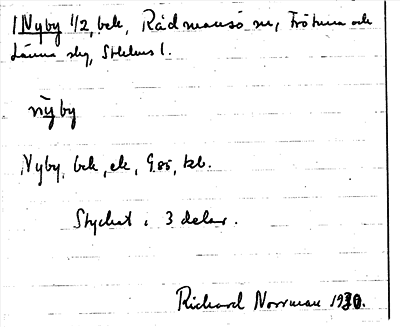 1 Nyby 1/2, bek, Rådmansö sn, Frötuna och
Länna slg, Sthlms l.
nȳby
Nyby, bek, ek, Gsö, tab.
Styckat i 3 delar.
Richard Norrman 1930.